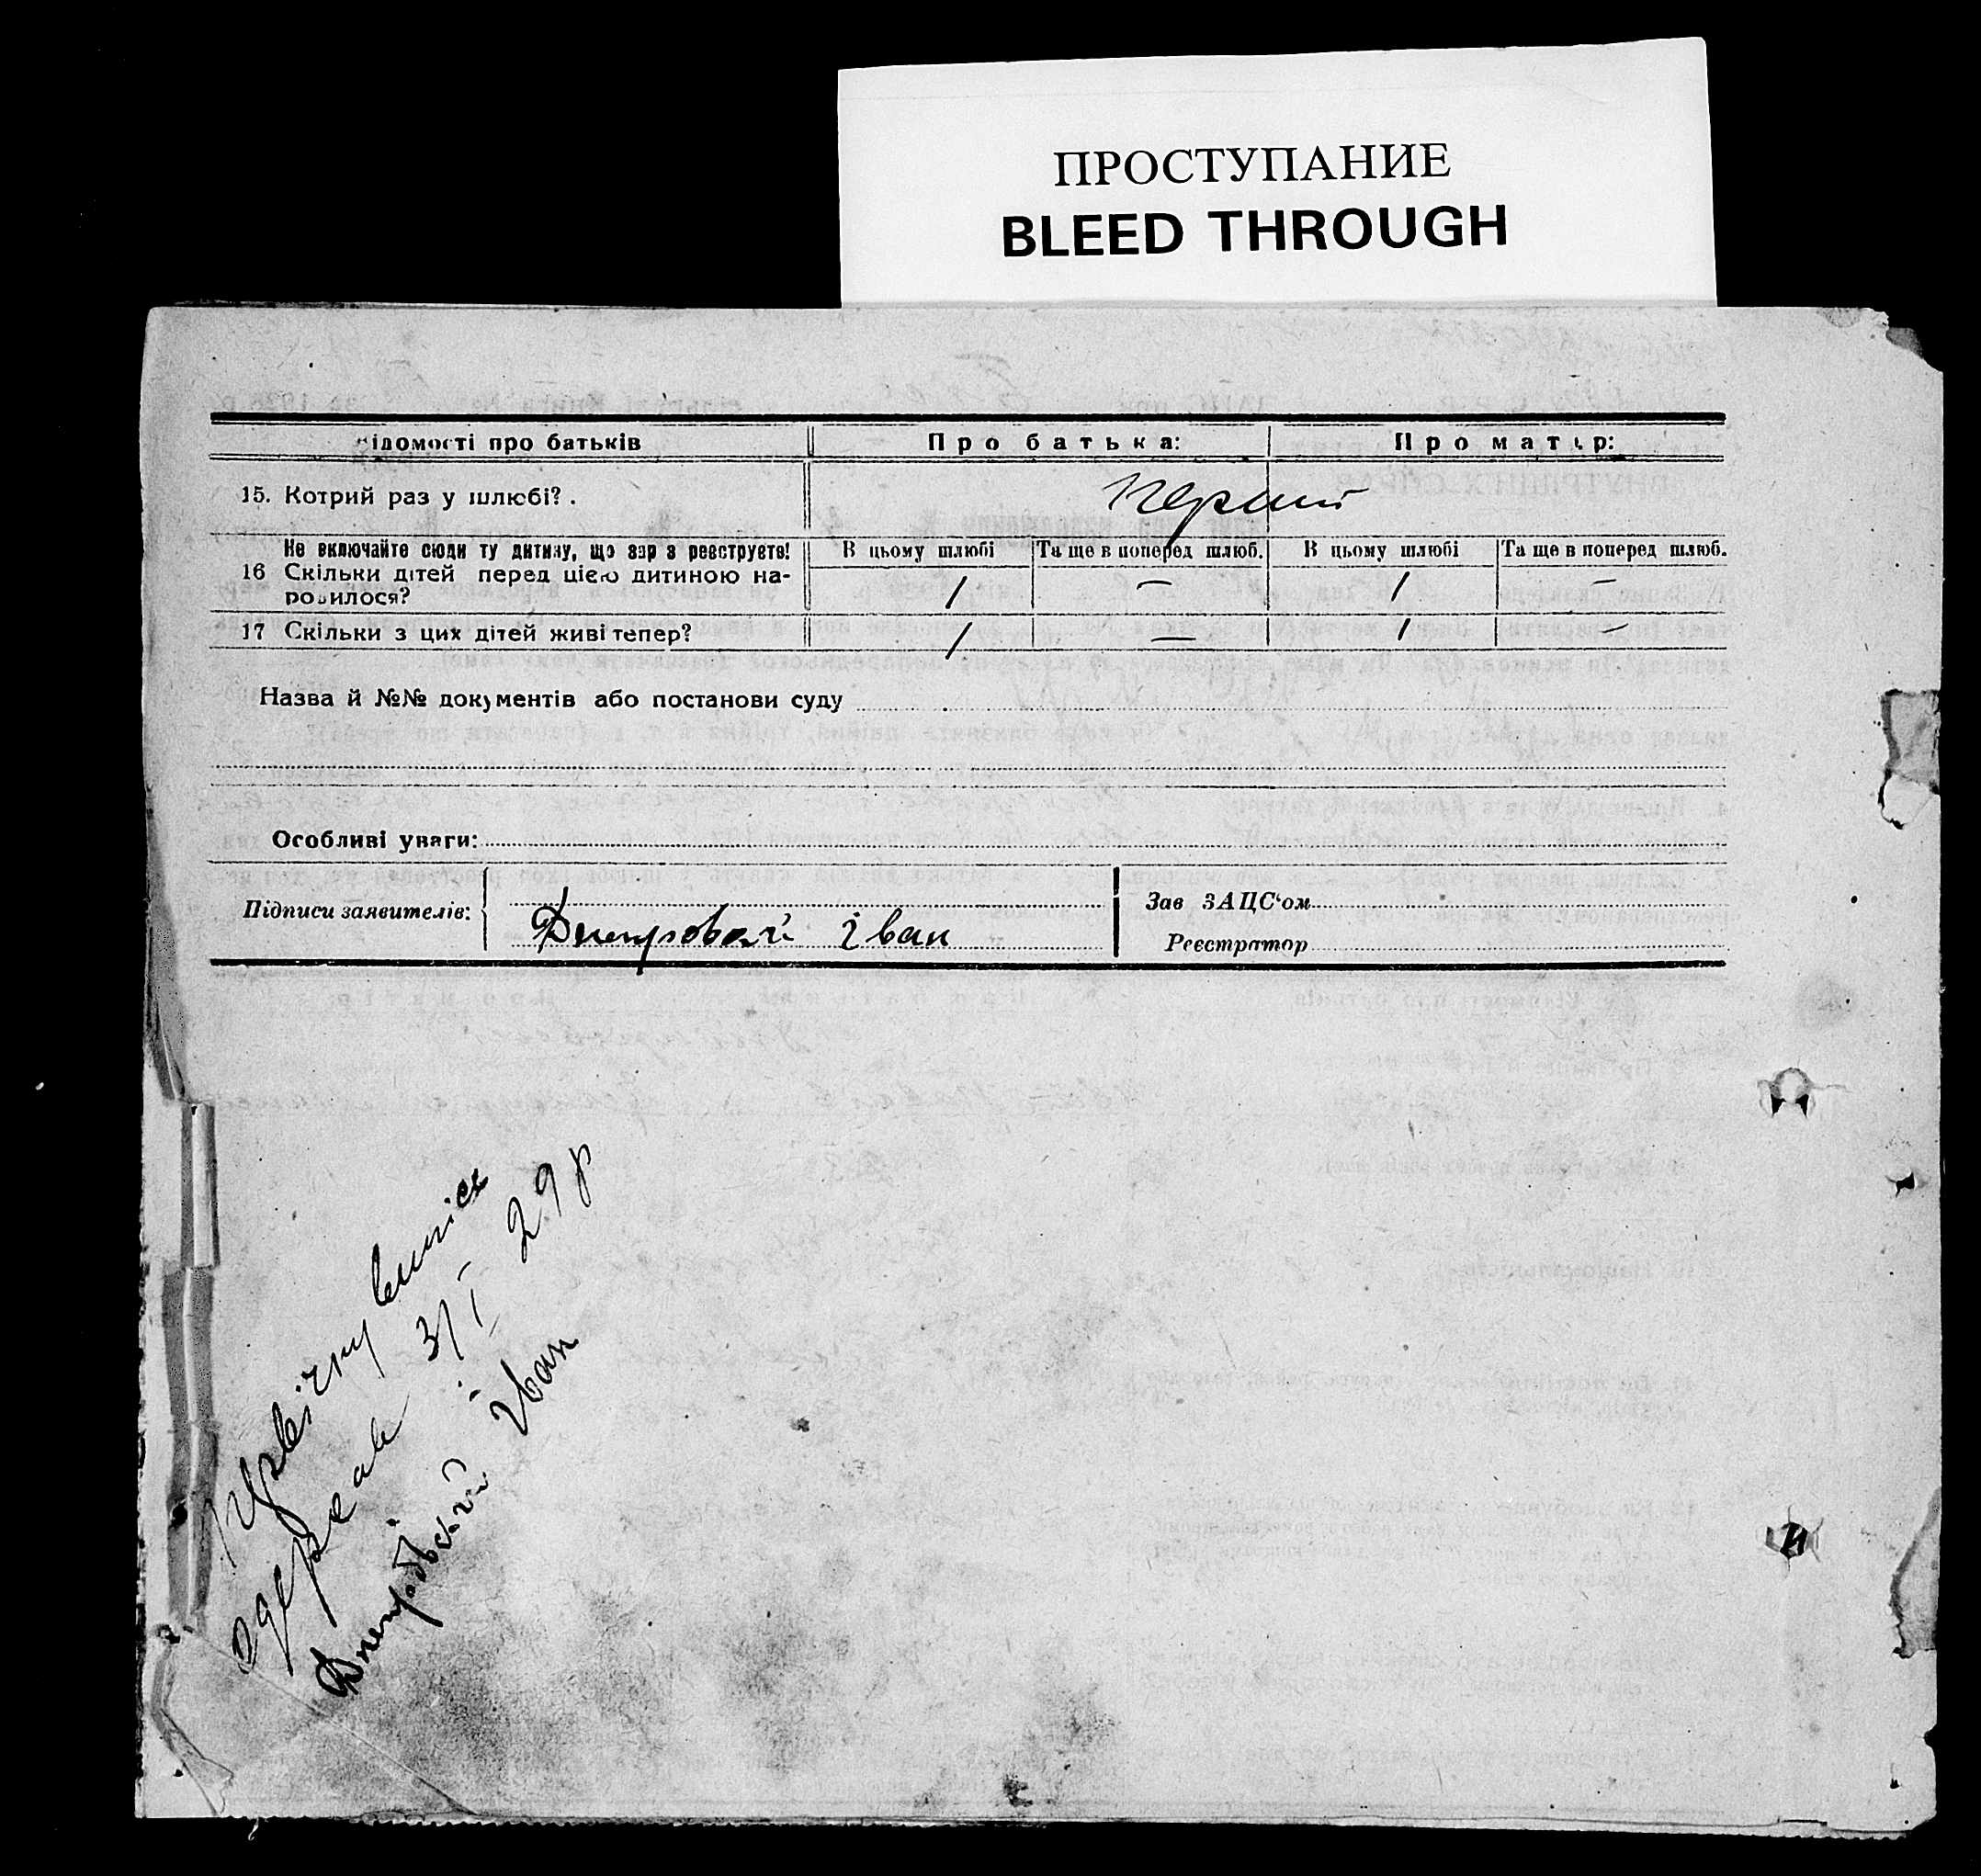 ПРОСТУПАНИЕ
BLEED THROUGH
ідомості про батьків Про батька: Про матір:
15. Котрий раз у шлюбі?. перший
Не включайте сюди ту дитину, що зараз реєструєте! В цьому шлюбі Та ще в поперед шлюб. В цьому шлюбі Та ще в поперед шлюб.
16 Скільки дітей перед цією дитиною на- 1 — 1 —
родилося?
17 Скільки з цих дітей живі тепер? 1 — 1 —
Назва й №№ документів або постанови суду
Особливі уваги:
Підписи заявителів: Зав ЗАЦС‘ом
Іван Реєстратор
випіс
одержав 3/I 29 р
Іван